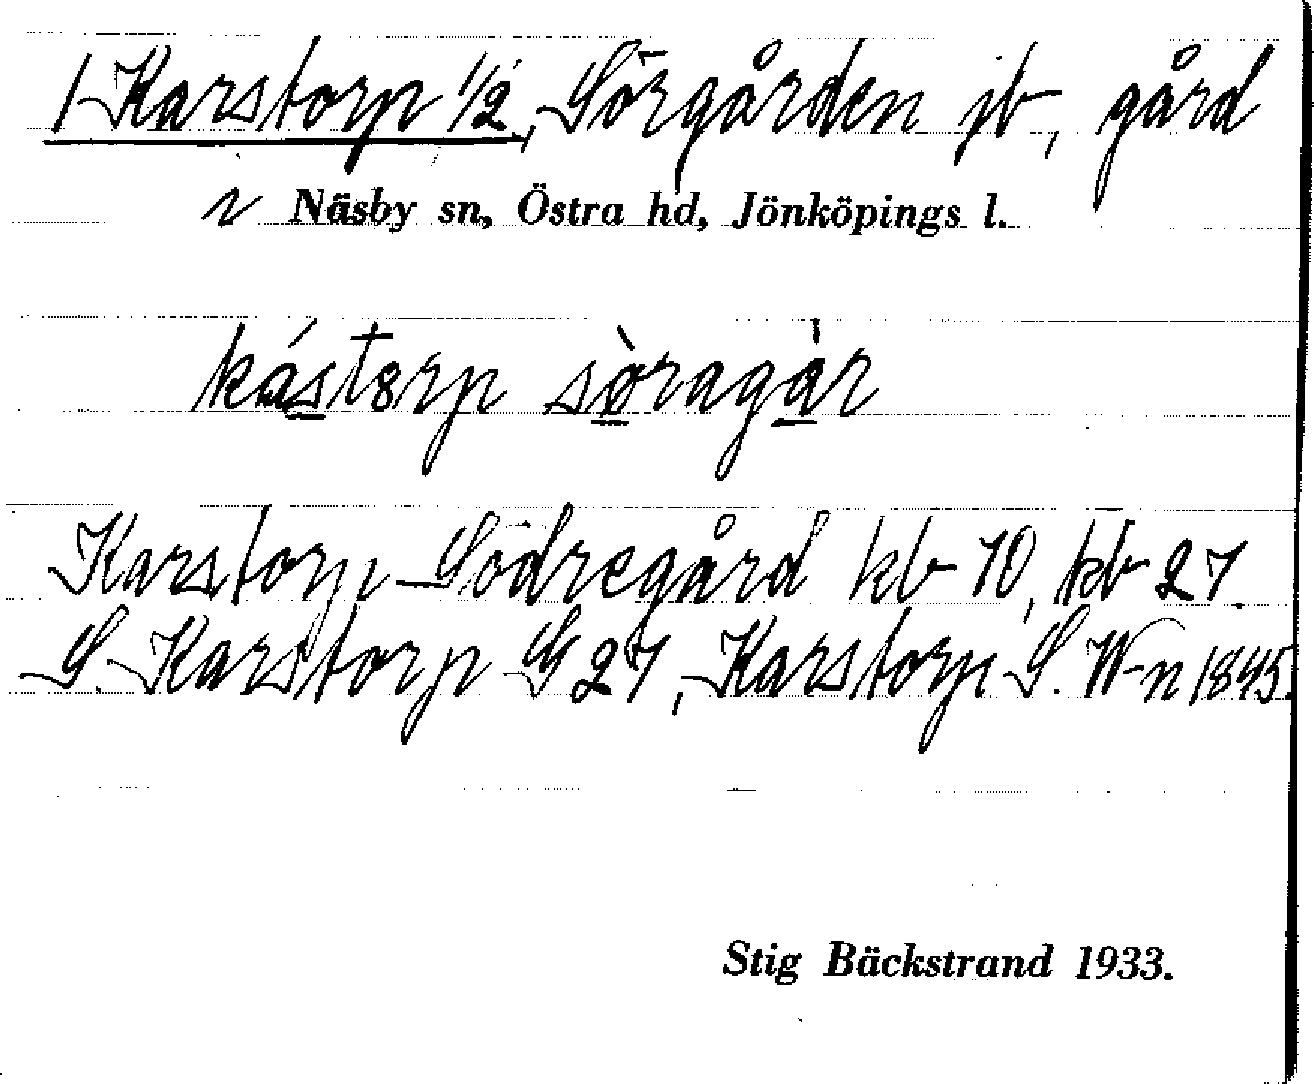 1 Karstorp 1/2, Sörgården jb, gård
i Näsby sn, Östra hd, Jönköpings l.
kástorp sòragàr
Karstorp Södregård kb 10, kb 27.
S. Karstorp G 27, Karstorp S. W-n 1845.
Stig Bäckstrand 1933.